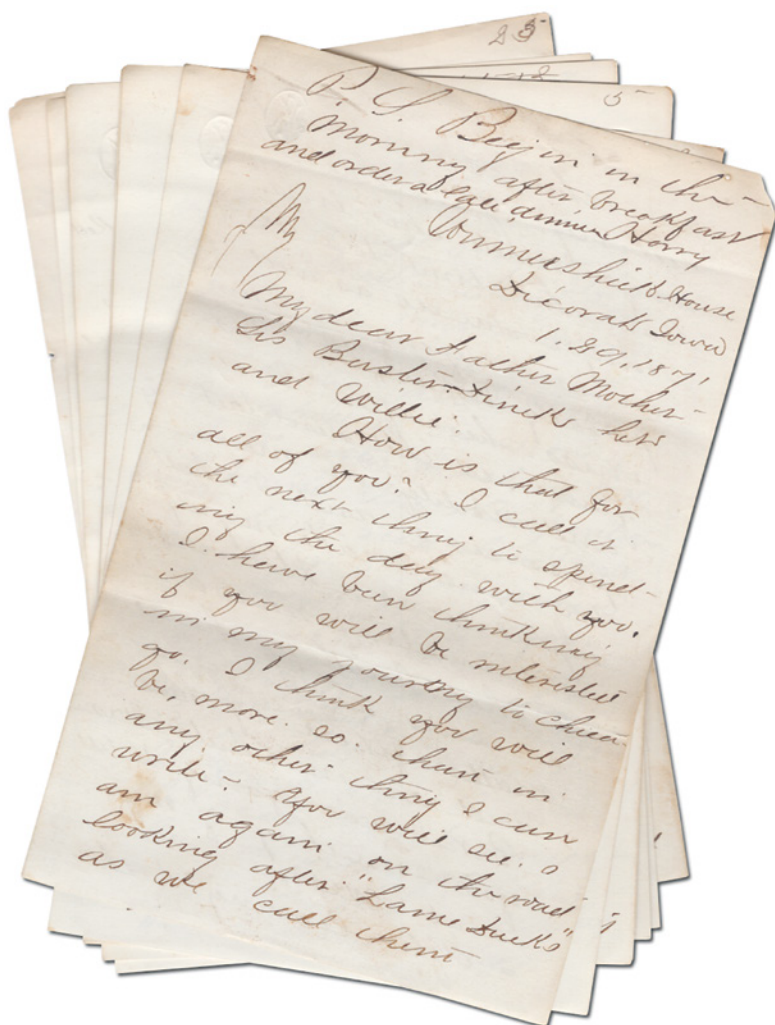 25
5
P. S. Begin in the
morning after breakfast
and order a late dinner Harry
My
House
Decorah Iowa
1. 29. 1871,
My dear Father Mother
Sis Buster
and Willie.
How is that for
all of you? I call it
the next thing to spend-
ing the day with you.
I have been thinking
if you will be interested
in my journey to Chica-
go. I think you will
be, more so than in
any other thing I can
write - You will see I
am again on the road
looking after "Lame Ducks"
as we call them